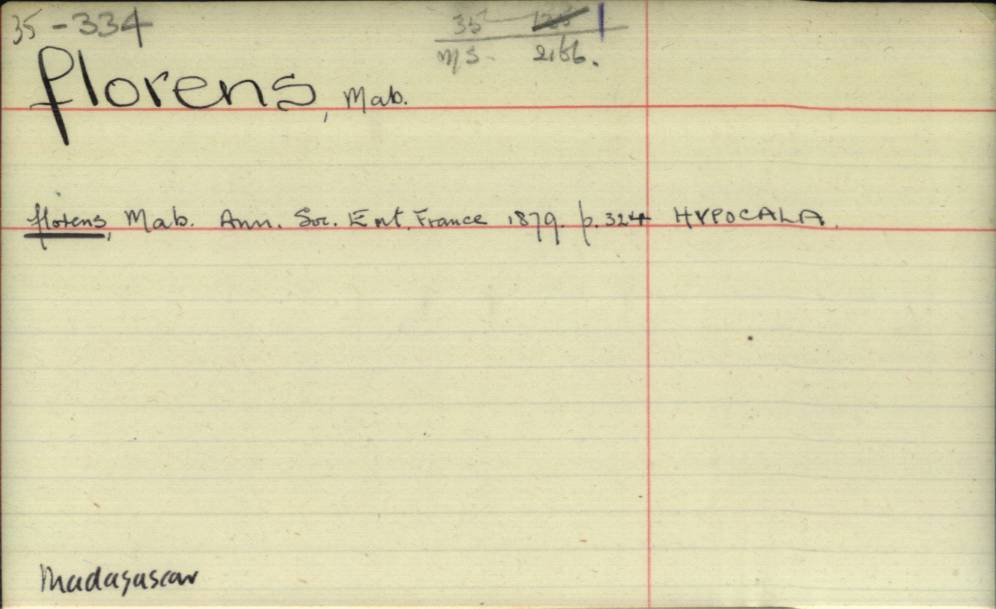 35-334
35
M S. 2166.
florens, Mab.
florens, Mab. Ann. Soc. Ent. France 1879. p. 324 HYPOCALA.
Madagascar